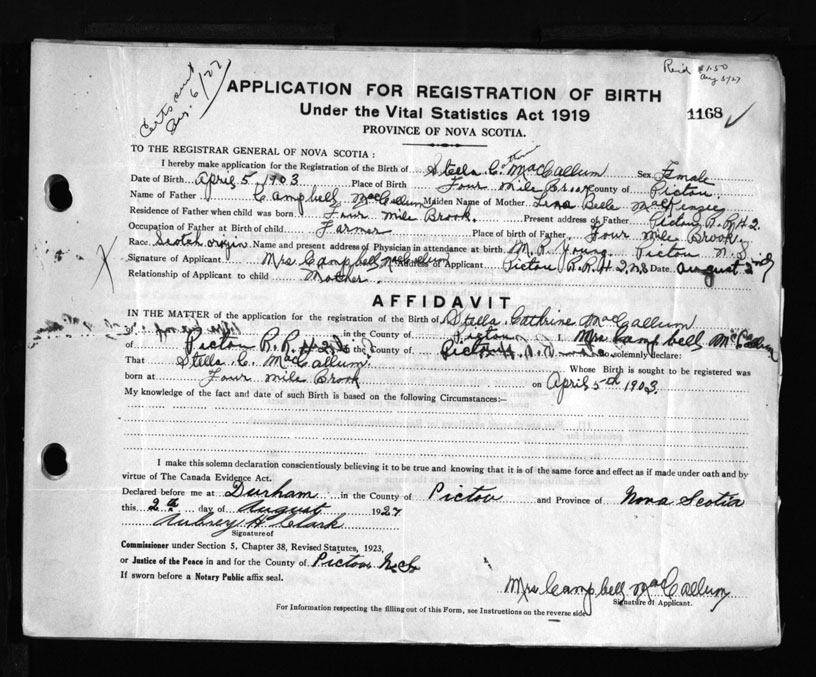 Reid $1.50
Aug 5/27
Certs sent
Aug. 6/27
APPLICATION FOR REGISTRATION OF BIRTH
Under the Vital Statistics Act 1919
1168
PROVINCE OF NOVA SCOTIA.
TO THE REGISTRAR GENERAL OF NOVA SCOTIA:
I hereby make application for the Registration of the Birth of Stella C. MacCallum Sex Female
Date of Birth April 5 1903 Place of Birth Four Mile Brook County of Pictou
Name of Father Campbell MacCallum Maiden Name of Mother Lena Belle MacKenzie
Residence of Father when child was born Four Mile Brook. Present address of Father Pictou R. R # 2.
Occupation of Father at Birth of child Farmer Place of birth of Father Four Mile Brook
Race Scotch origin Name and present address of Physician in attendance at birth M. R. Young. Pictou N.S
Signature of Applicant Mrs Campbell MacCallum Address of Applicant Pictou R.R # 2, NS Date August 2nd
Relationship of Applicant to child Mother.
AFFIDAVIT
IN THE MATTER of the application for the registration of the Birth of Stella Cathrine MacCallum
in the County of Pictou I, Mrs Campbell McCallum
of Pictou R. R. # 2 in the County of Pictou solemnly declare:
That Stella C. MacCallum Whose Birth is sought to be registered was
born at Four Mile Brook on April 5th 1903.
My knowledge of the fact and date of such Birth is based on the following Circumstances:—
I make this solemn declaration conscientiously believing it to be true and knowing that it is of the same force and effect as if made under oath and by
virtue of The Canada Evidence Act.
Declared before me at Durham in the County of Pictou and Province of Nova Scotia
this 2th day of August 1927
Aubrey H Clark
Signature of
Commissioner under Section 5, Chapter 38, Revised Statutes, 1923,
or Justice of the Peace in and for the County of Pictou
If sworn before a Notary Public affix seal.
Mrs Campbell MacCallum
Signature of Applicant.
For Information respecting the filling out of this Form, see Instructions on the reverse side.